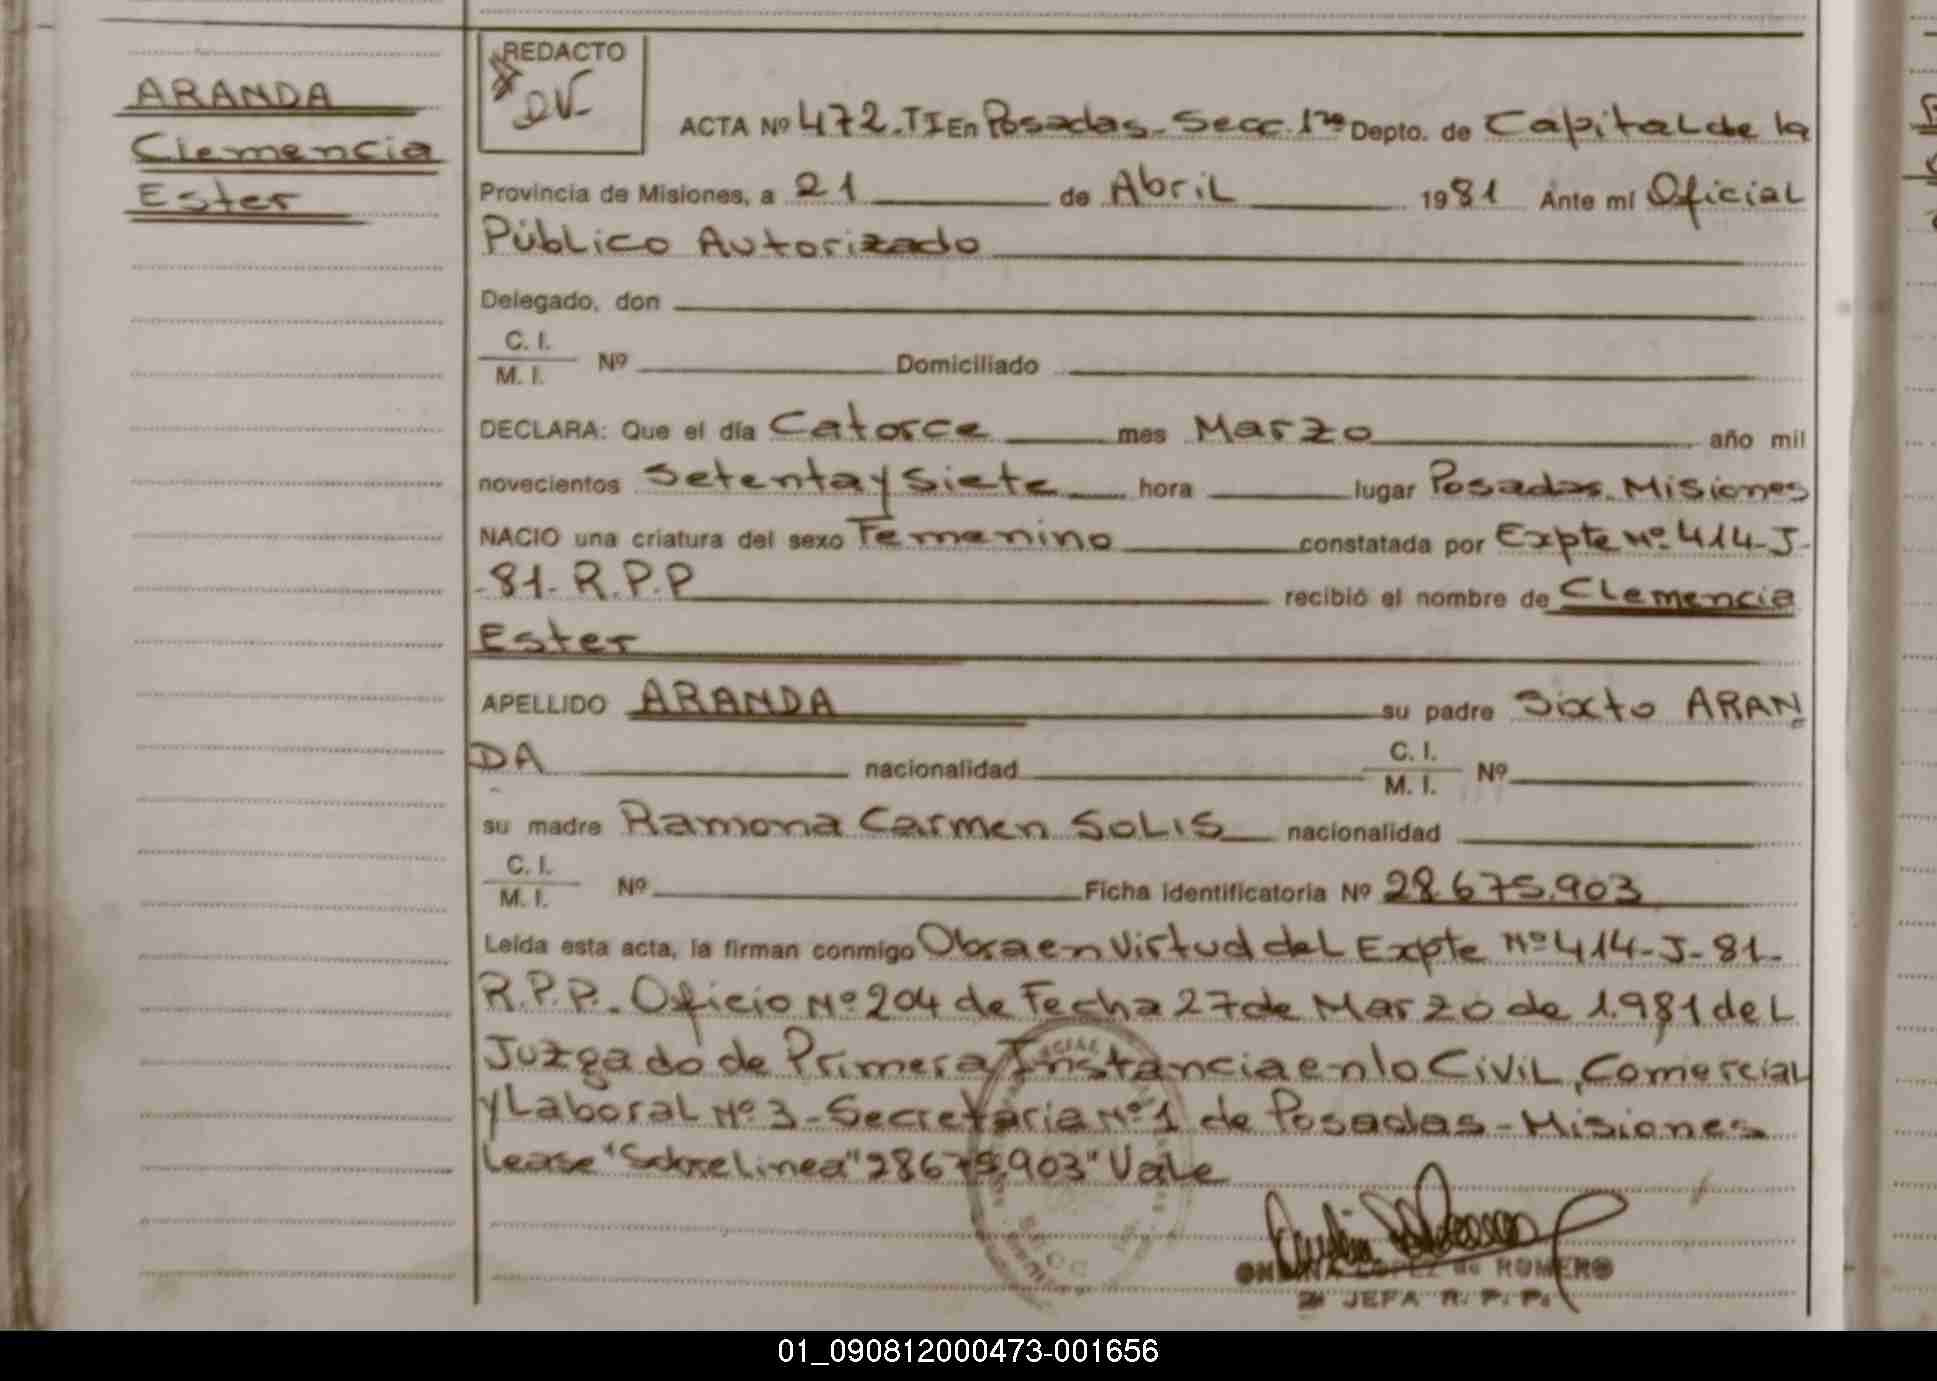 ARANDA
Clemencia
Ester
REDACTO
ACTA Nº 472. TI En Posadas. Secc. 1ra Depto. de Capital de la
Provincia de Misiones, a 21 de Abril 1981 Ante mí Oficial
Público Autorizado
Delegado, don
C. I.
M. I. Nº Domiciliado
DECLARA: Que el día Catorce mes Marzo año mil
novecientos Setenta y Siete hora lugar Posadas. Misiones
NACIO una criatura del sexo Femenino constatada por Expte Nº 414-J-
-81- R.P.P recibió el nombre de Clemencia
Ester
APELLIDO ARANDA su padre Sixto ARAN
DA nacionalidad C. I. M. I. Nº
su madre Ramona Carmen SOLIS nacionalidad
C. I.
M. I. Nº Ficha identificatoria Nº 28.675.903
Leída esta acta, la firman conmigo Obra en Virtud del Expte Nº 414-J-81-
R.P.P. Oficio Nº 204 de Fecha 27 de Marzo de 1.981 del
Juzgado de Primera Instancia en lo Civil, Comercial
y Laboral Nº 3 - Secretaria Nº 1 de Posadas - Misiones
Lease "Sobrelinea" 28675.903" Vale
LOPEZ de ROMERO
JEFA R. P. P.
01_090812000473-001656